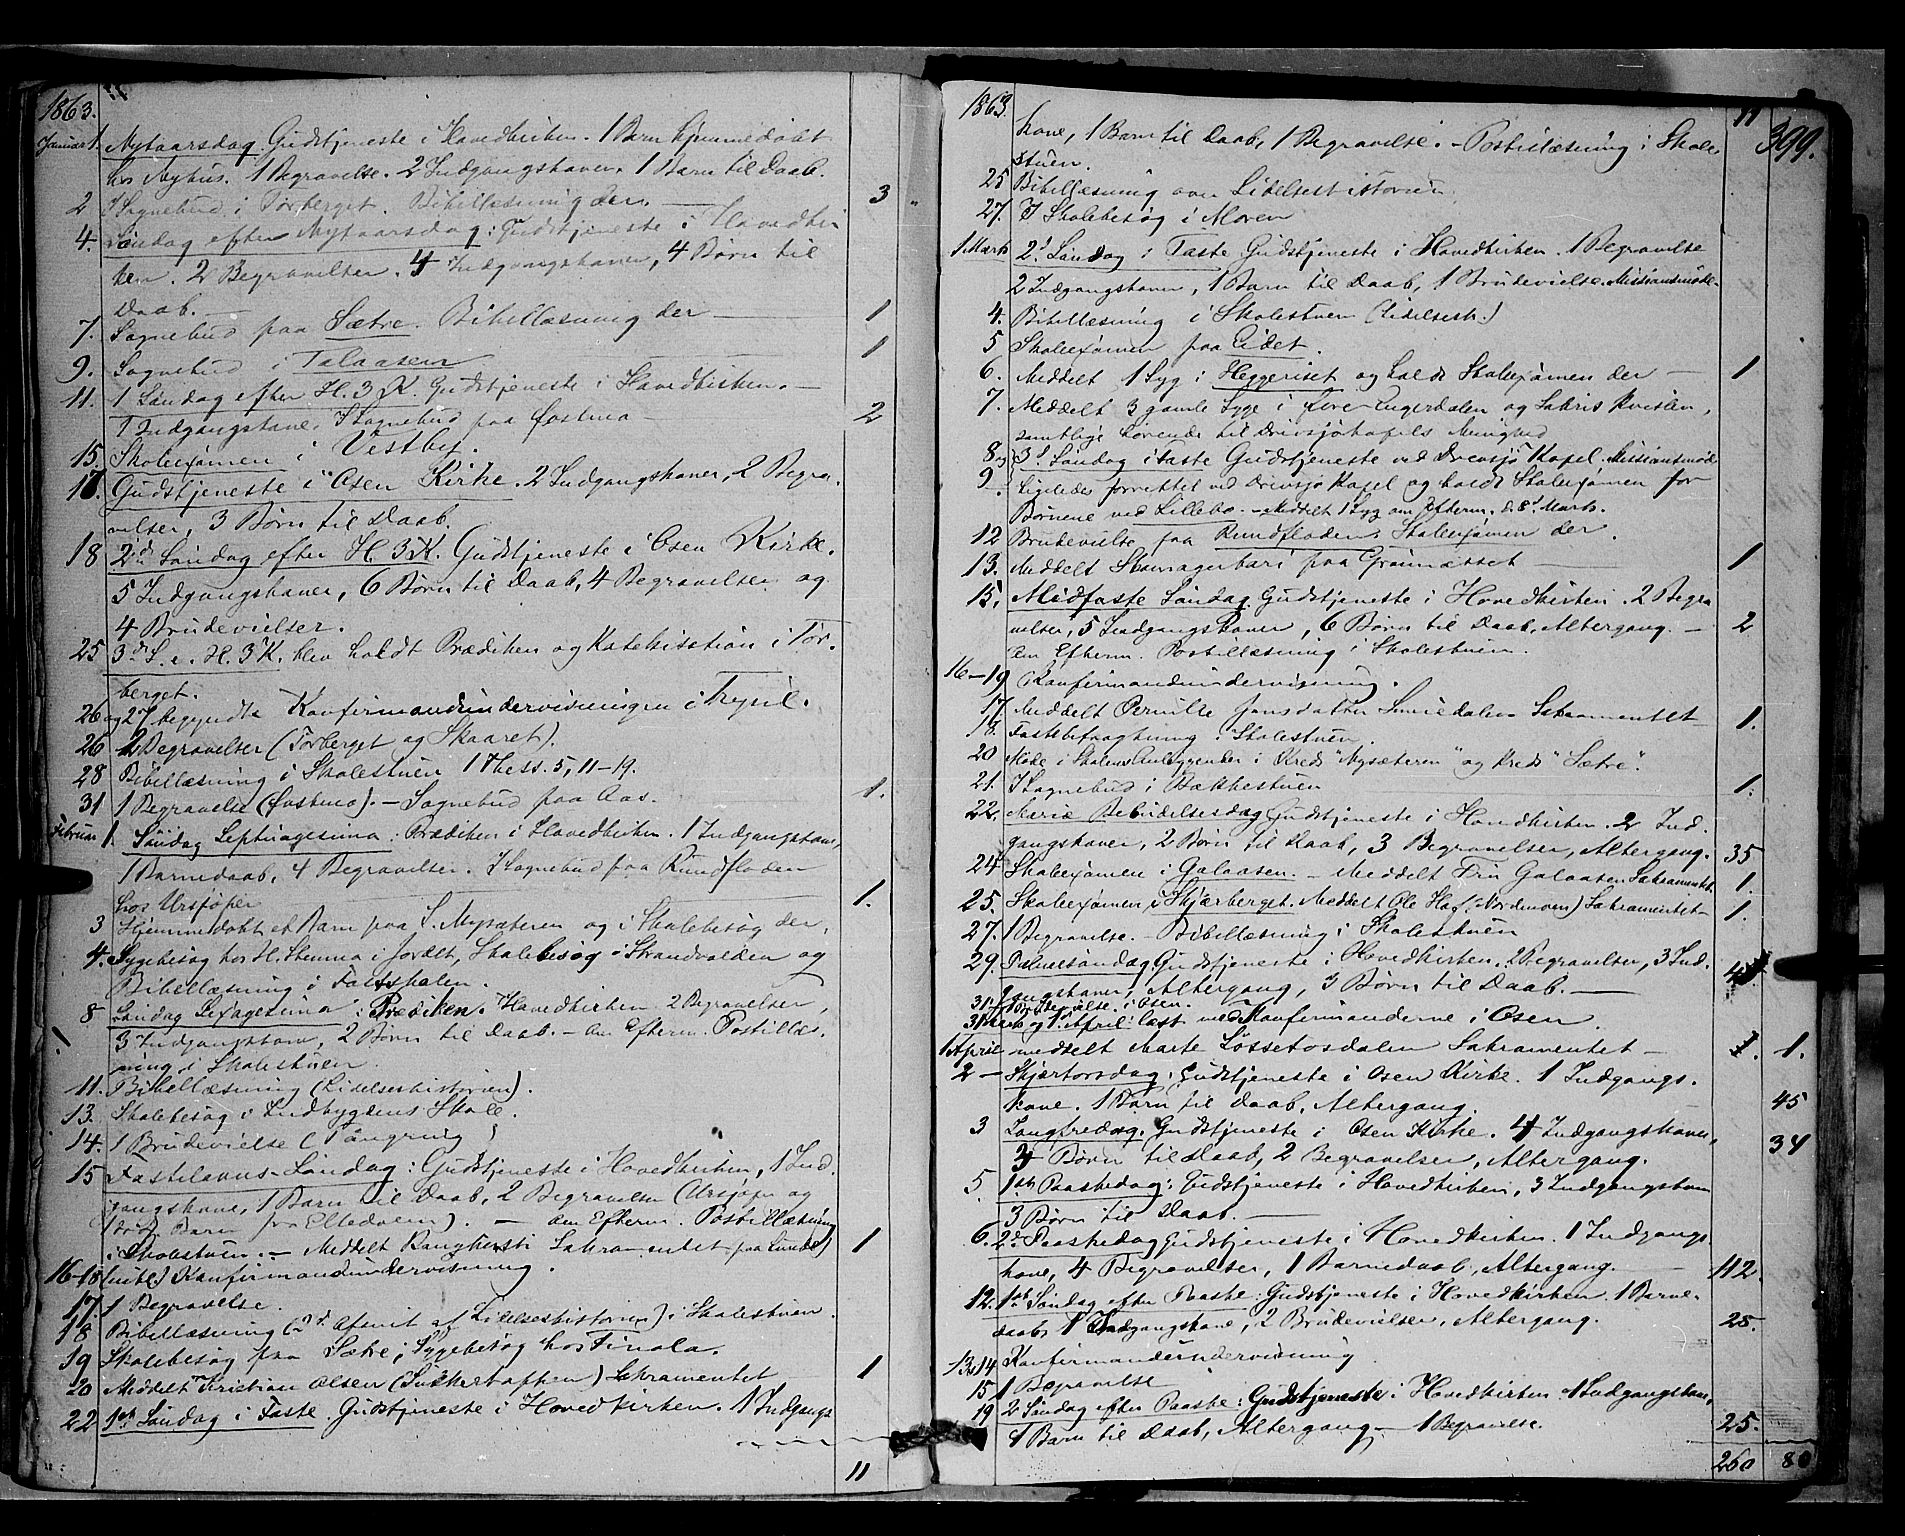 1863.
Januar 1. Nytaarsdag. Gudstjeneste i Hovedkirken. 1 Barn hjemmedøbt
hos Nyhus. 1 Begravelse. 2 Indgangskoner. 1 Barn til Daab.
2 I Sognebud i Törberget. Bibellæsning der. — 3
4. Søndag efter Nytaarsdag: Gudstjeneste i Hovedkir
ken. 2 Begravelser. 4 Indgangskoner, 4 Børn til
Daab. —
7. Sognebud paa Sætre. Bibellæsning der — 1
9. Sognebud i Galaasen — 1
11. 1 Søndag efter H. 3 K. Gudstjeneste i Hovedkirken. —
1 Indgangskone. I Sognebud paa Østmo — 2
15. Skoleexamen i Vestby.
17. Gudstjeneste i Osen Kirke. 2 Indgangskoner, 2 Begra
velser, 3 Børn til Daab.
18 2d Søndag efter H. 3 K. Gudstjeneste i Osen Kirke.
5 Indgangskoner, 6 Børn til Daab, 4 Begravelser og
4 Brudevielser.
25 3d S. e. H. 3 K. blev holdt Prædiken og Katekisation i Tør-
berget.
26 og 27 begyndte Konfirmandundervisningen i Trysil.
26 2 Begravelser (Törberget og Skaaret).
28 Bibellæsning i Skolestuen 1 Thess. 5, 11-19.
31 1 Begravelse (Østmo). — Sognebud paa Aas. 1.
Februar 1. Søndag Septuagesima: Prædiken i Hovedkirken. 1 Indgangskone,
1 Barnedaab, 4 Begravelser. I Sognebud paa Rundfloden
hos Ursjöpr 1.
3 Hjemmedøbt et Barn paa S. Mysæteren og i Skolebesøg der.
4. Sygebesøg hos H. Stemmo i Jordet, Skolebesøg i Strandvolden og
Bibellæsning i
8 Søndag Sexagesima: Prædiken i Hovedkirken 2 Begravelser,
3 Indgangskone, 2 Børn til Daab. — om Efterm. Postillæs-
ning i Skolestuen.
11. Bibellæsning (Lidelseshistorien).
13. Skolebesøg i Indbygdens Skole.
14. 1 Brudevielse
15 Fastelavns-Søndag: Gudstjeneste i Hovedkirken, 1 Ind
gangskone, 1 Barn til Daab, 2 Begravelser (Ursjöpr og
1 Barn fra Elledalen). — om Efterm. Postillæsning
i Skolestuen. — Meddelt Sakramentet paa Lunde) 1
16-18 Konfirmandundervisning.
17. 1 Begravelse.
18 Bibellæsning (2d Afsnit af Lidelseshistorien) i Skolestuen.
19 Skolebesøg paa Sætre; Sygebesøg hos Finola.
20 Meddelt Kristian Olsen Sakramentet 1
22 1ste Søndag i Faste. Gudstjeneste i Hovedkirken. 1 Indgangs
11
1863.
11
399.
kone, 1 Barn til Daab, 1 Begravelse. — Postillæsning i Skole
stuen.
25 Bibellæsning over Lidelseshistorien
27. I Skolebesøg i Moren
1. Marts 2d Søndag i Faste Gudstjeneste i Hovedkirken. 1 Begravelse
2 Indgangskoner, 1 Barn til Daab, 1 Brudevielse. Missionsmøde.
4. Bibellæsning i Skolestuen (Lidelsesh.)
5 Skoleexamen paa Eidet.
6. Meddelt 1 Syg i Heggeriset og holdt Skoleexamen der — 1
7. Meddelt 3 gamle Syge i Engerdalen og
samtlige hørende til Drevsjøkapels Menighed
8 og 3d Søndag i Faste Gudstjeneste ved Drevsjø Kapel. Missionsmøde
9. Ligeledes forrettet ved Drevsjø Kapel og holdt Skoleexamen for
Børnene ved Lillebo. — Meddelt 1 Syg om Efterm. d. 8d Marts.
12 Brudevielse paa Rundfloden. Skoleexamen der.
13. Meddelt paa Grönæsset — 1
15. Midfaste Søndag. Gudstjeneste i Hovedkirken. 2 Begra
velser, 5 Indgangskoner, 6 Børn til Daab, Altergang. — 2
om Efterm. Postillæsning i Skolestuen.
16-19 Konfirmandundervisning.
17 Meddelt Pernille Jonsdatter Sakramentet 1.
18. i Skolestuen.
20 Møde i Skolens Anliggender i Kreds "Mysæteren" og Kreds "Sætre".
21. I Sognebud i Bakkestuen 1.
22. Mariæ Bebudelsesdag Gudstjeneste i Hovedkirken. 2 Ind
gangskoner, 2 Børn til Daab, 3 Begravelser, Altergang. 35
24 Skoleexamen i Galaasen. — Meddelt Galaasen Sakramentet. 1.
25. Skoleexamen i Skjærberget. Meddelt Ole Sakramentet — 1.
27. 1 Begravelse. — Bibellæsning i Skolestuen
29. Palmesøndag Gudstjeneste i Hovedkirken. 2 Begravelser, 3 Ind-
gangskoner, Altergang, 3 Børn til Daab. —
31. 1 Brudevielse i Osen.
31 Marts og 1 April: læst med Konfirmanderne i Osen.
1 April meddelt Marte Lössetosdalen Sakramentet — 1.
2 — Skjærtorsdag: Gudstjeneste i Osen Kirke. 1 Indgangs-
kone. 1 Barn til Daab, Altergang. 45
3 Langfredag. Gudstjeneste i Osen Kirke. 4 Indgangskoner,
3 Børn til Daab, 2 Begravelser, Altergang. 34
5. 1ste Paaskedag: Gudstjeneste i Hovedkirken, 3 Indgangskoner
3 Børn til Daab. —
6. 2d Paaskedag Gudstjeneste i Hovedkirken. 1 Indgangs
kone, 4 Begravelser, 1 Barnedaab, Altergang. — 112.
12. 1ste Søndag efter Paaske: Gudstjeneste i Hovedkirken. 1 Barne-
daab, 1 Indgangskone, 2 Brudevielser, Altergang. 28.
13 & 14 Konfirmandundervisning
15 1 Begravelse
19 2 Søndag efter Paaske: Gudstjeneste i Hovedkirken 1 Indgangskone,
1 Barn til Daab, Altergang — 1 Begravelse. 25.
260 80